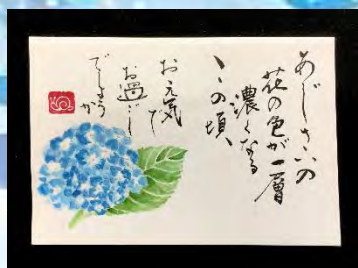 あじさいの
花の色が一層
濃くなる
この頃、
お元気で
お過ごし
でしょうか